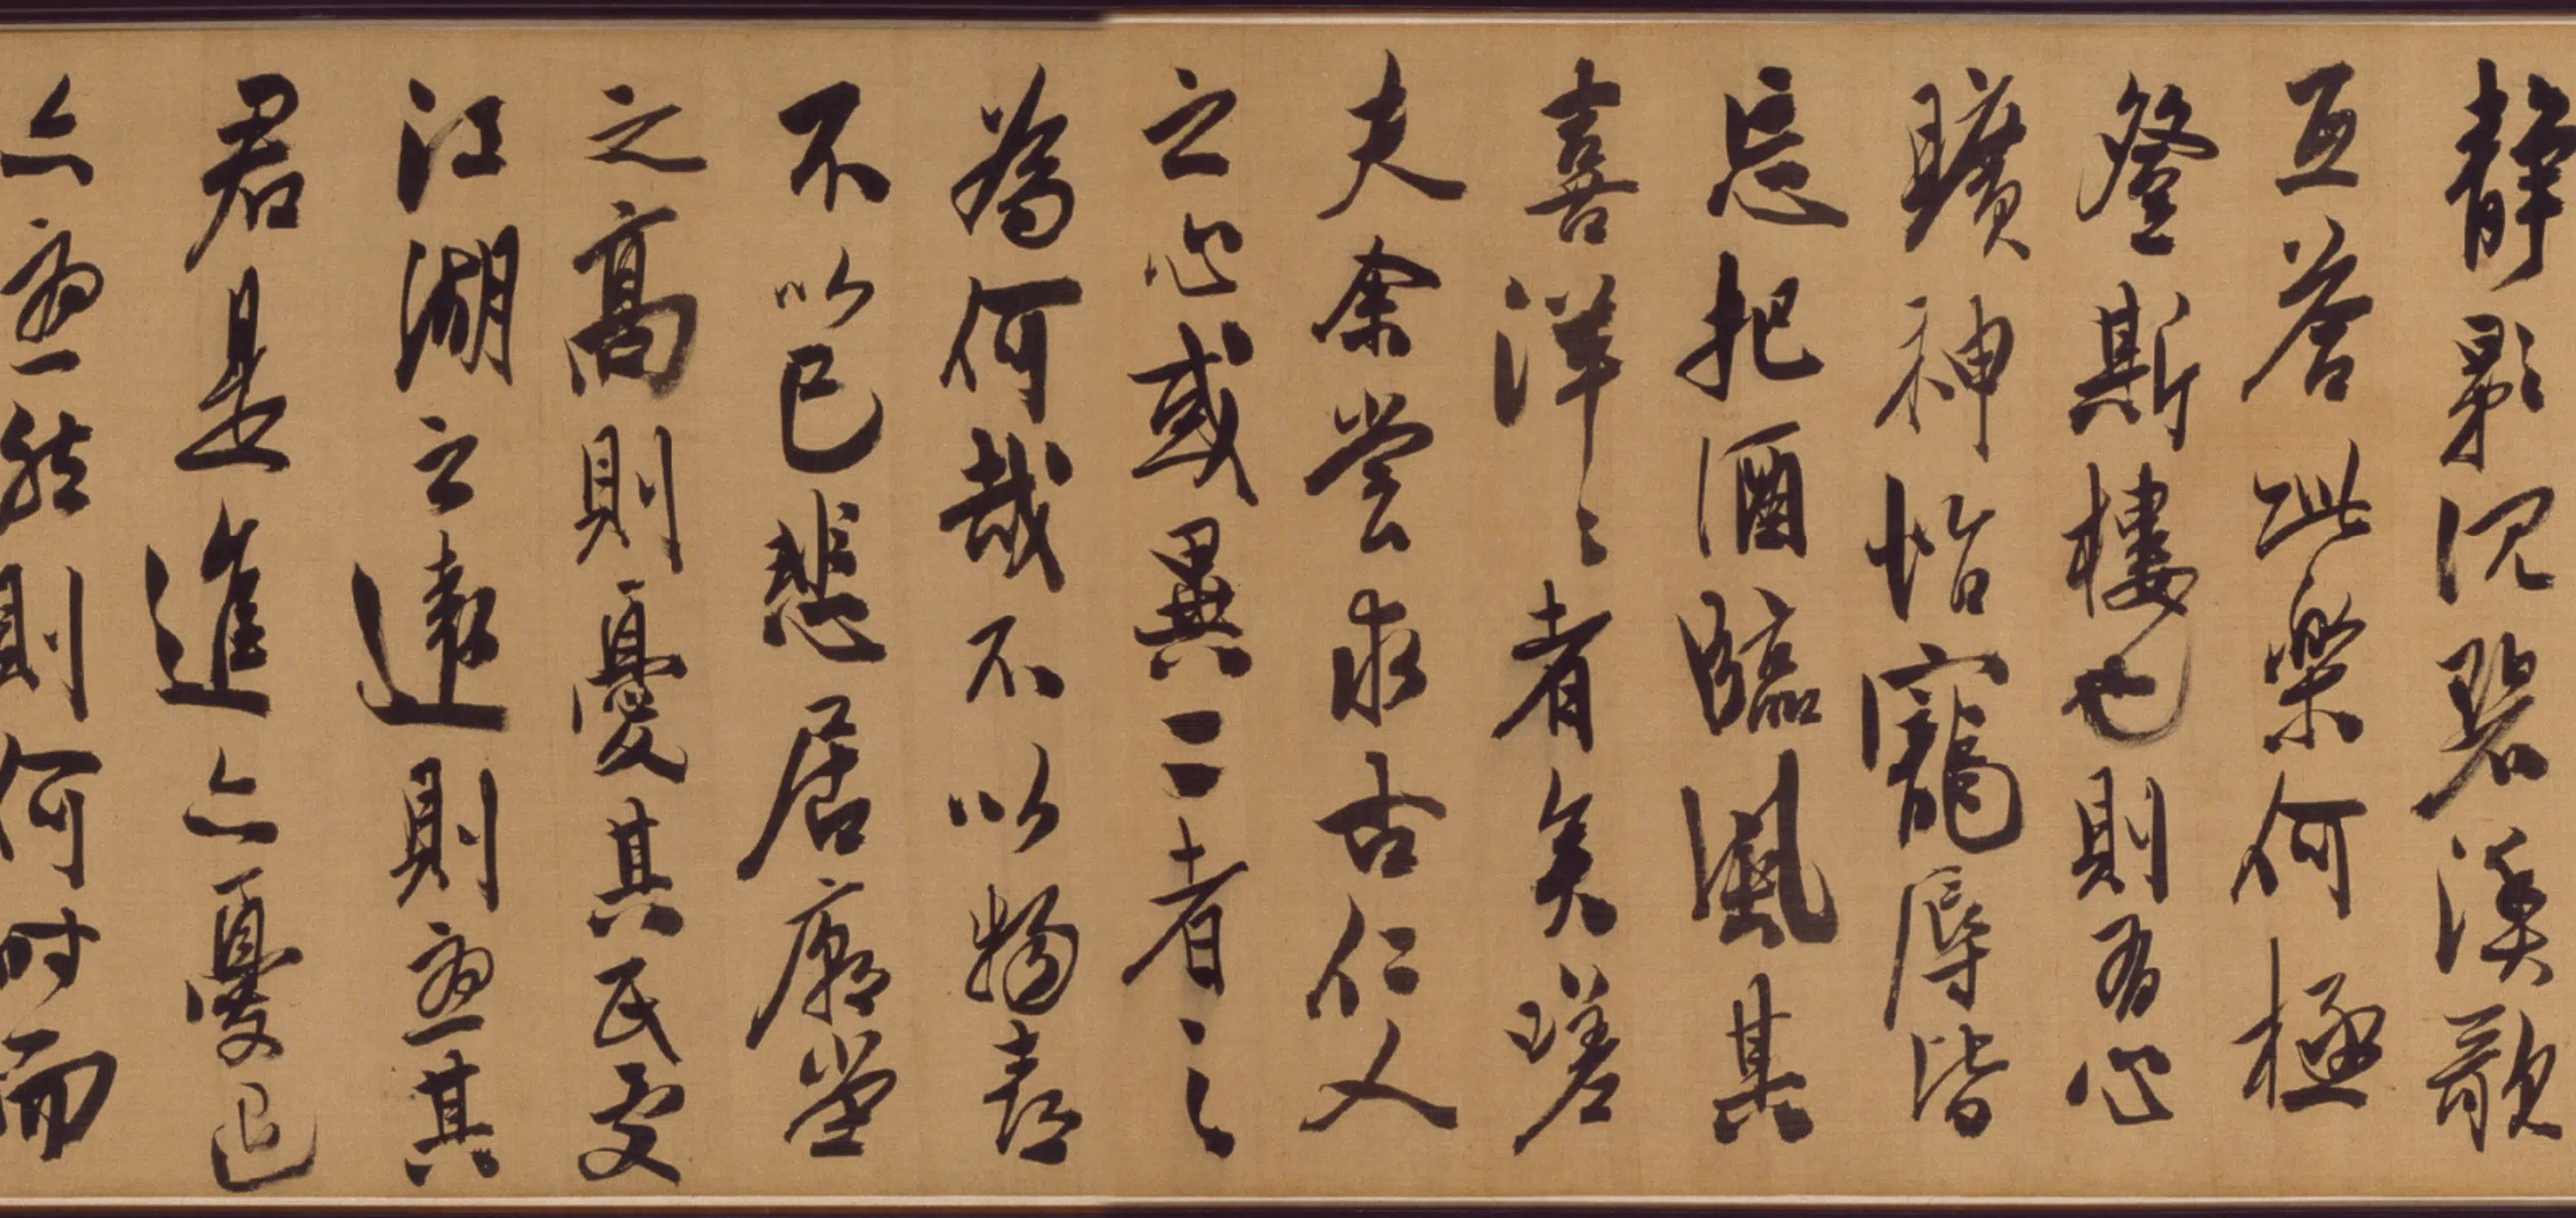 靜影沉碧漁歌
互荅此樂何極
登斯樓也則有心
曠神怡寵辱皆
忘把酒臨風其
喜洋〻者矣嗟
夫余嘗求古仁人
之心或異二者之
為何哉不以物喜
不以己悲居廟堂
之高則憂其民處
江湖之遠則憂其
君是進亦憂退
亦憂然則何時而